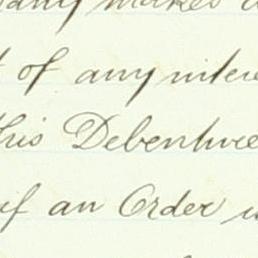 any makes
of any intere
this Debenture
if an Order